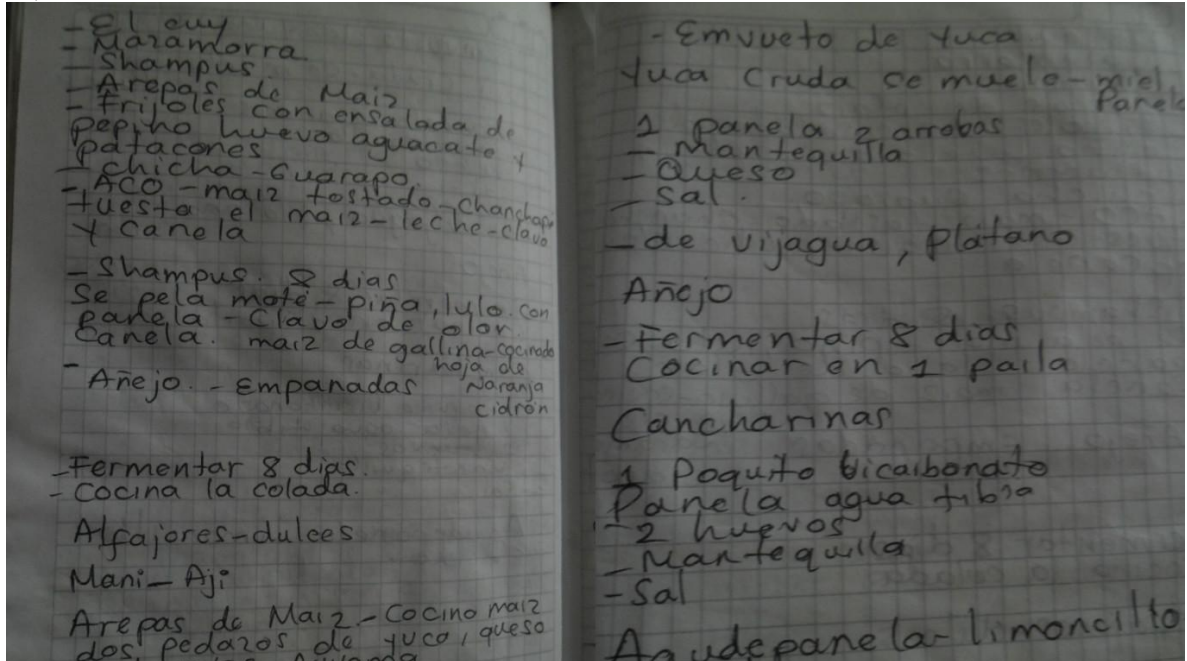 - El cuy
- Mazamorra
- Shampus
- Arepas de Maiz
- Frijoles con ensalada de
pepino huevo aguacate y
patacones
- chicha - Guarapo
- ACO - maiz tostado - 
tuesta el maiz - leche - clavo
y canela
- Shampus. 8 dias
Se pela mote - piña, lylo. con
panela - Clavo de olor.
Canela. maiz de gallina - cocinado
hoja de
- Añejo. - Empanadas Naranja
cidrón
- Fermentar 8 dias.
- Cocina la colada.
Alfajores - dulces
Mani - Aji
Arepas de Maiz - Cocino maiz
dos pedazos de yuca, queso
- Emvueto de Yuca
Yuca Cruda se muele - miel
Panela
1 panela 2 arrobas
- Mantequilla
- Queso
- Sal.
- de vijagua, Plátano
Añejo
- Fermentar 8 dias
Cocinar en 1 paila
Cancharinas
1 Poquito bicarbonato
Panela agua tibia
- 2 huevos
- Mantequilla
- Sal
- Aguadepanela - limoncillo